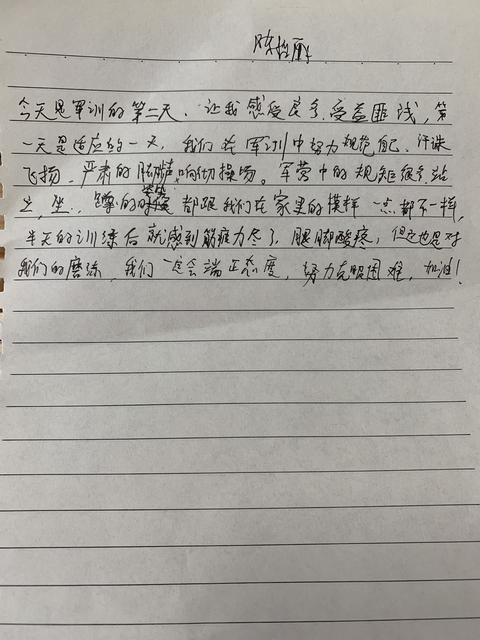 今天是军训的第二天，让我感受良多，受益匪浅，第
一天是适应的一天，我们在军训中努力规范自己，汗珠
飞扬，严肃的 响彻操场。军营中的规矩很多，站
立，坐， 的 都跟我们在家里的模样一点都不一样，
半天的训练后就感到筋疲力尽了，腿脚酸疼，但这也是对
我们的磨练，我们一定会端正态度，努力克服困难，加油！